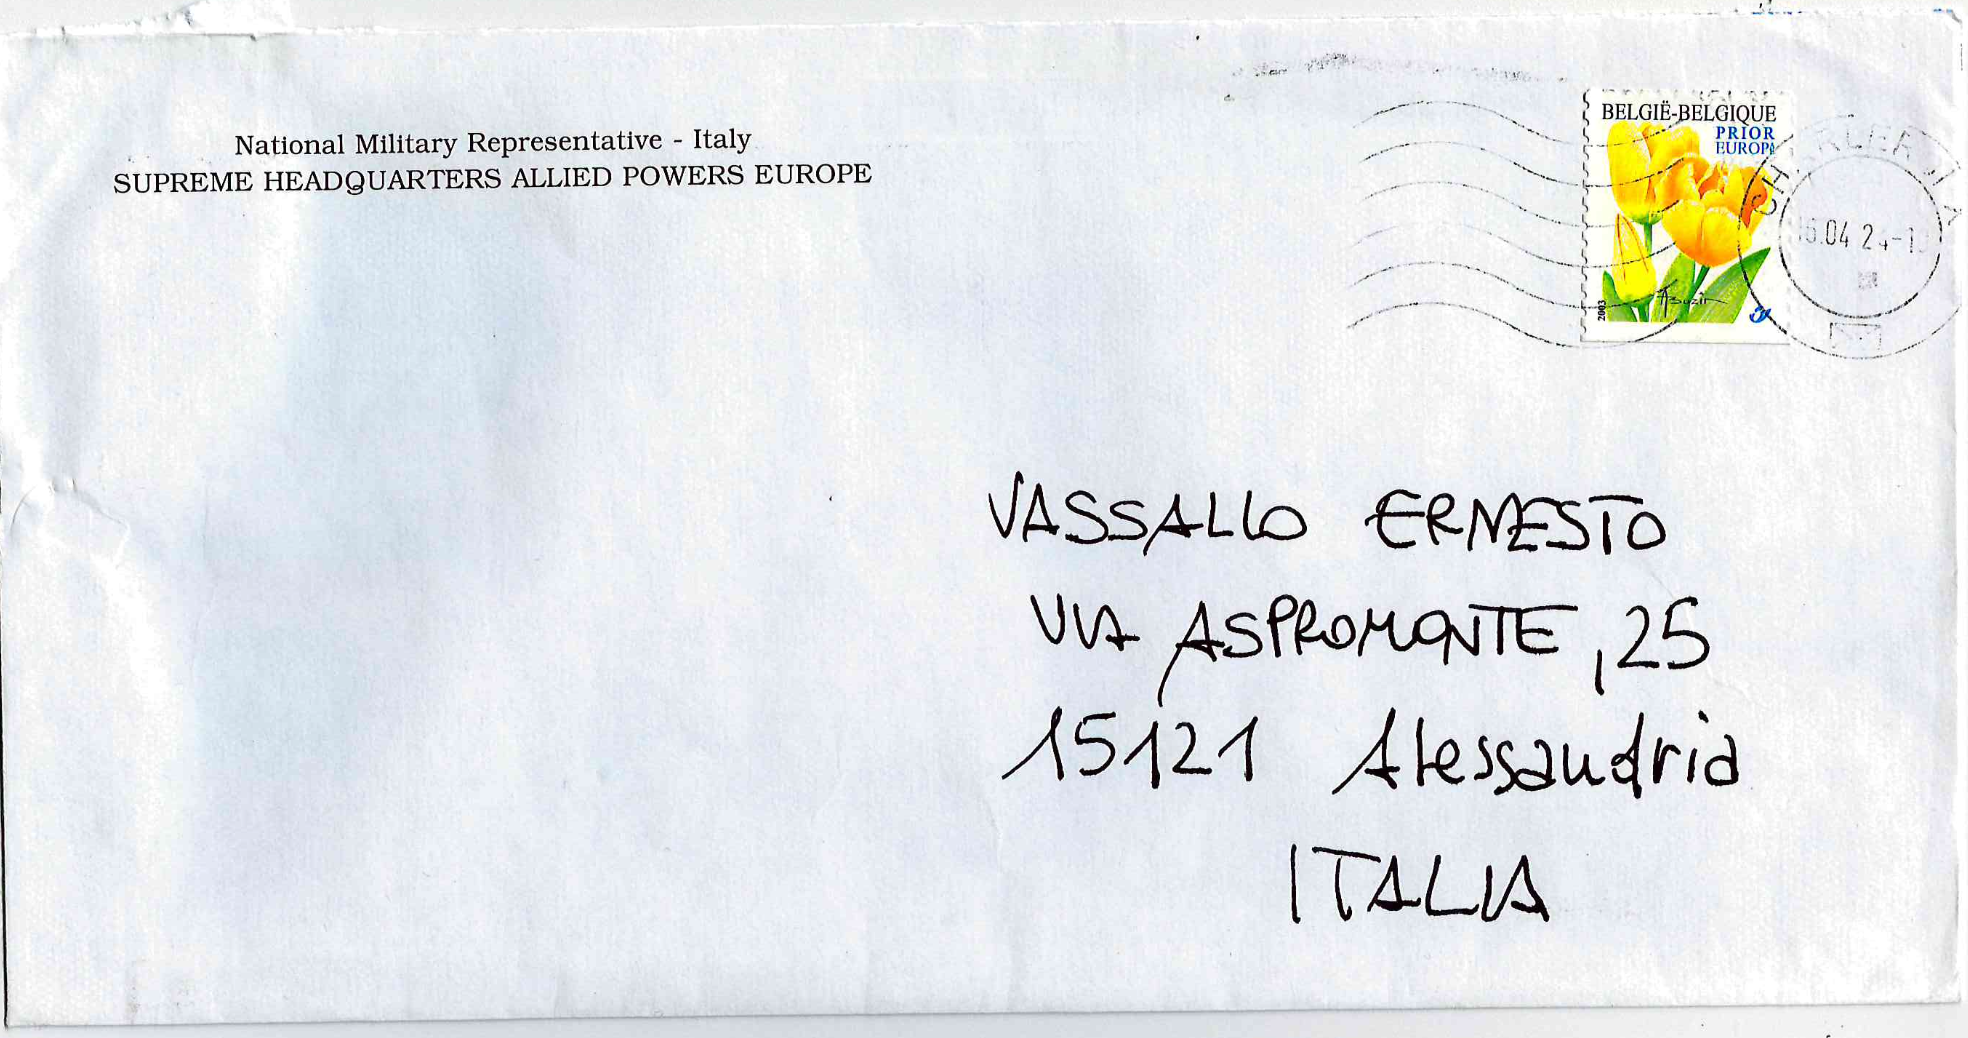 National Military Representative - Italy
SUPREME HEADQUARTERS ALLIED POWERS EUROPE
BELGIË-BELGIQUE
PRIOR
EUROPA
2003
ABuzin
VASSALLO ERNESTO
VIA ASPROMONTE, 25
15121 Alessandria
ITALIA